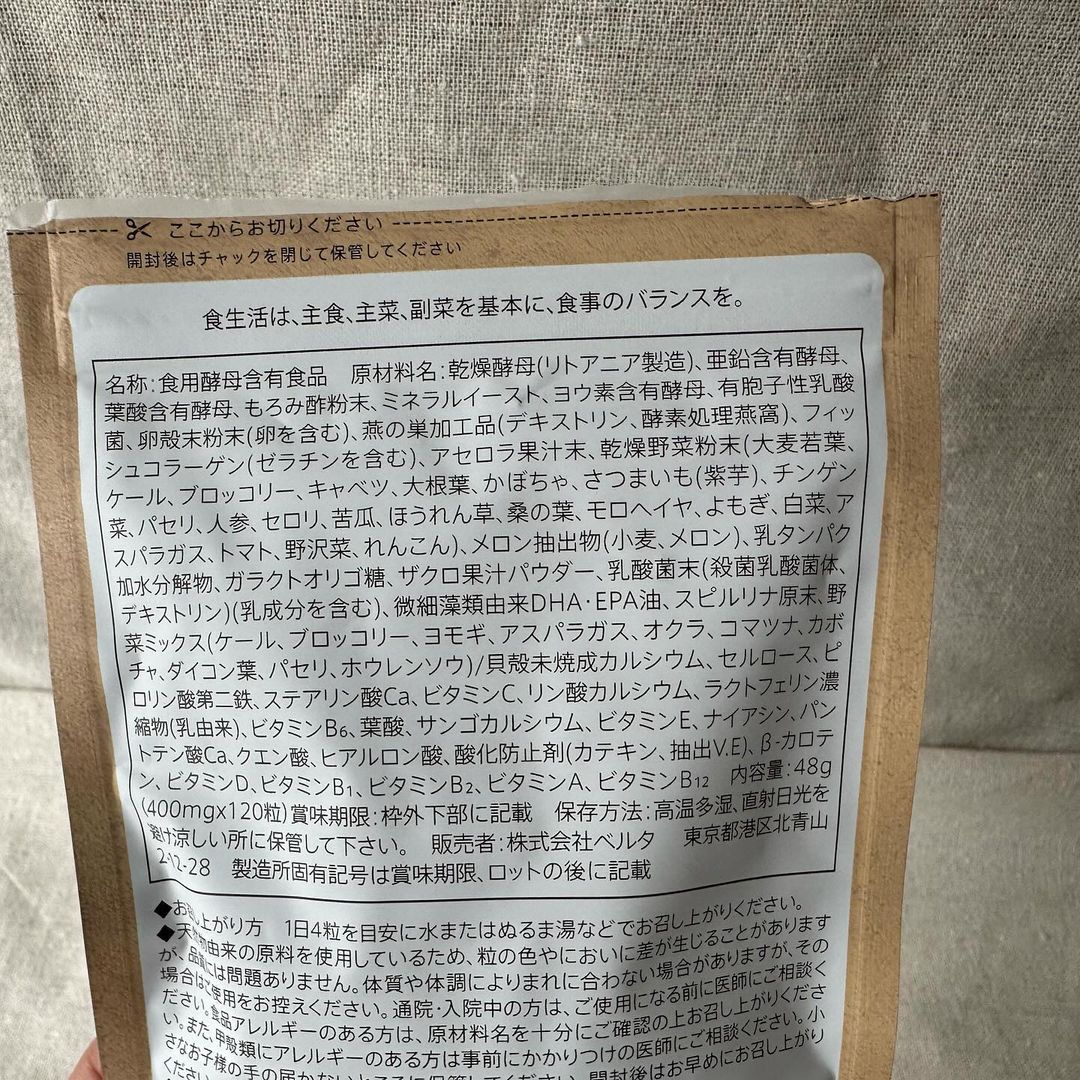 ここからお切りください
開封後はチャックを閉じて保管してください
食生活は、主食、主菜、副菜を基本に、食事のバランスを。
名称:食用酵母含有食品 原材料名:乾燥酵母(リトアニア製造)、亜鉛含有酵母、
葉酸含有酵母、もろみ酢粉末、ミネラルイースト、ヨウ素含有酵母、有胞子性乳酸
菌、卵殻末粉末(卵を含む)、燕の巣加工品(デキストリン、酵素処理燕窩)、フィッ
シュコラーゲン(ゼラチンを含む)、アセロラ果汁末、乾燥野菜粉末(大麦若葉、
ケール、ブロッコリー、キャベツ、大根葉、かぼちゃ、さつまいも(紫芋)、チンゲン
菜、パセリ、人参、セロリ、苦瓜、ほうれん草、桑の葉、モロヘイヤ、よもぎ、白菜、ア
スパラガス、トマト、野沢菜、れんこん)、メロン抽出物(小麦、メロン)、乳タンパク
加水分解物、ガラクトオリゴ糖、ザクロ果汁パウダー、乳酸菌末(殺菌乳酸菌体、
デキストリン)(乳成分を含む)、微細藻類由来DHA・EPA油、スピルリナ原末、野
菜ミックス(ケール、ブロッコリー、ヨモギ、アスパラガス、オクラ、コマツナ、カボ
チャ、ダイコン葉、パセリ、ホウレンソウ)/貝殻未焼成カルシウム、セルロース、ピ
ロリン酸第二鉄、ステアリン酸Ca、ビタミンC、リン酸カルシウム、ラクトフェリン濃
縮物(乳由来)、ビタミンB₆、葉酸、サンゴカルシウム、ビタミンE、ナイアシン、パン
トテン酸Ca、クエン酸、ヒアルロン酸、酸化防止剤(カテキン、抽出V.E)、β-カロテ
ン、ビタミンD、ビタミンB₁、ビタミンB₂、ビタミンA、ビタミンB₁₂ 内容量:48g
(400mgx120粒)賞味期限:枠外下部に記載 保存方法:高温多湿、直射日光を
避け涼しい所に保管して下さい。 販売者:株式会社ベルタ 東京都港区北青山
2-12-28 製造所固有記号は賞味期限、ロットの後に記載
◆お召し上がり方 1日4粒を目安に水またはぬるま湯などでお召し上がりください。
◆天然物由来の原料を使用しているため、粒の色やにおいに差が生じることがあります
が、品質には問題ありません。体質や体調によりまれに合わない場合がありますが、その
場合はご使用をお控えください。通院・入院中の方は、ご使用になる前に医師にご相談く
ださい。食品アレルギーのある方は、原材料名を十分にご確認の上お召し上がりくださ
い。また、甲殻類にアレルギーのある方は事前にかかりつけの医師にご相談ください。小
さなお子様の手の届かないところに保管してください。開封後はお早めにお召し上がり
ください